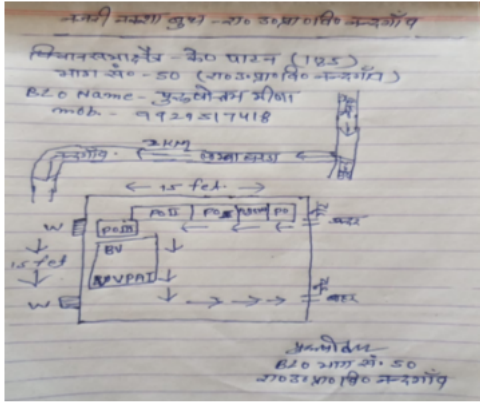 नजरी नक्शा बुथ - रा० उ० प्रा० वि० नन्दगाँव
विधानसभा क्षेत्र - के० पाटन (185)
भाग सं० - 50 (रा० उ० प्रा० वि० नन्दगाँव)
BLO Name - पुरुषोत्तम मीणा
mob. - 9929517418
2KM
नन्दगाँव.
← 15 feet. →
PO II PO PO
W
PO III
BV
VVPAT
15 feet
W
पुरुषोत्तम
BLO भाग सं० 50
रा० उ० प्रा० वि० नन्दगाँव